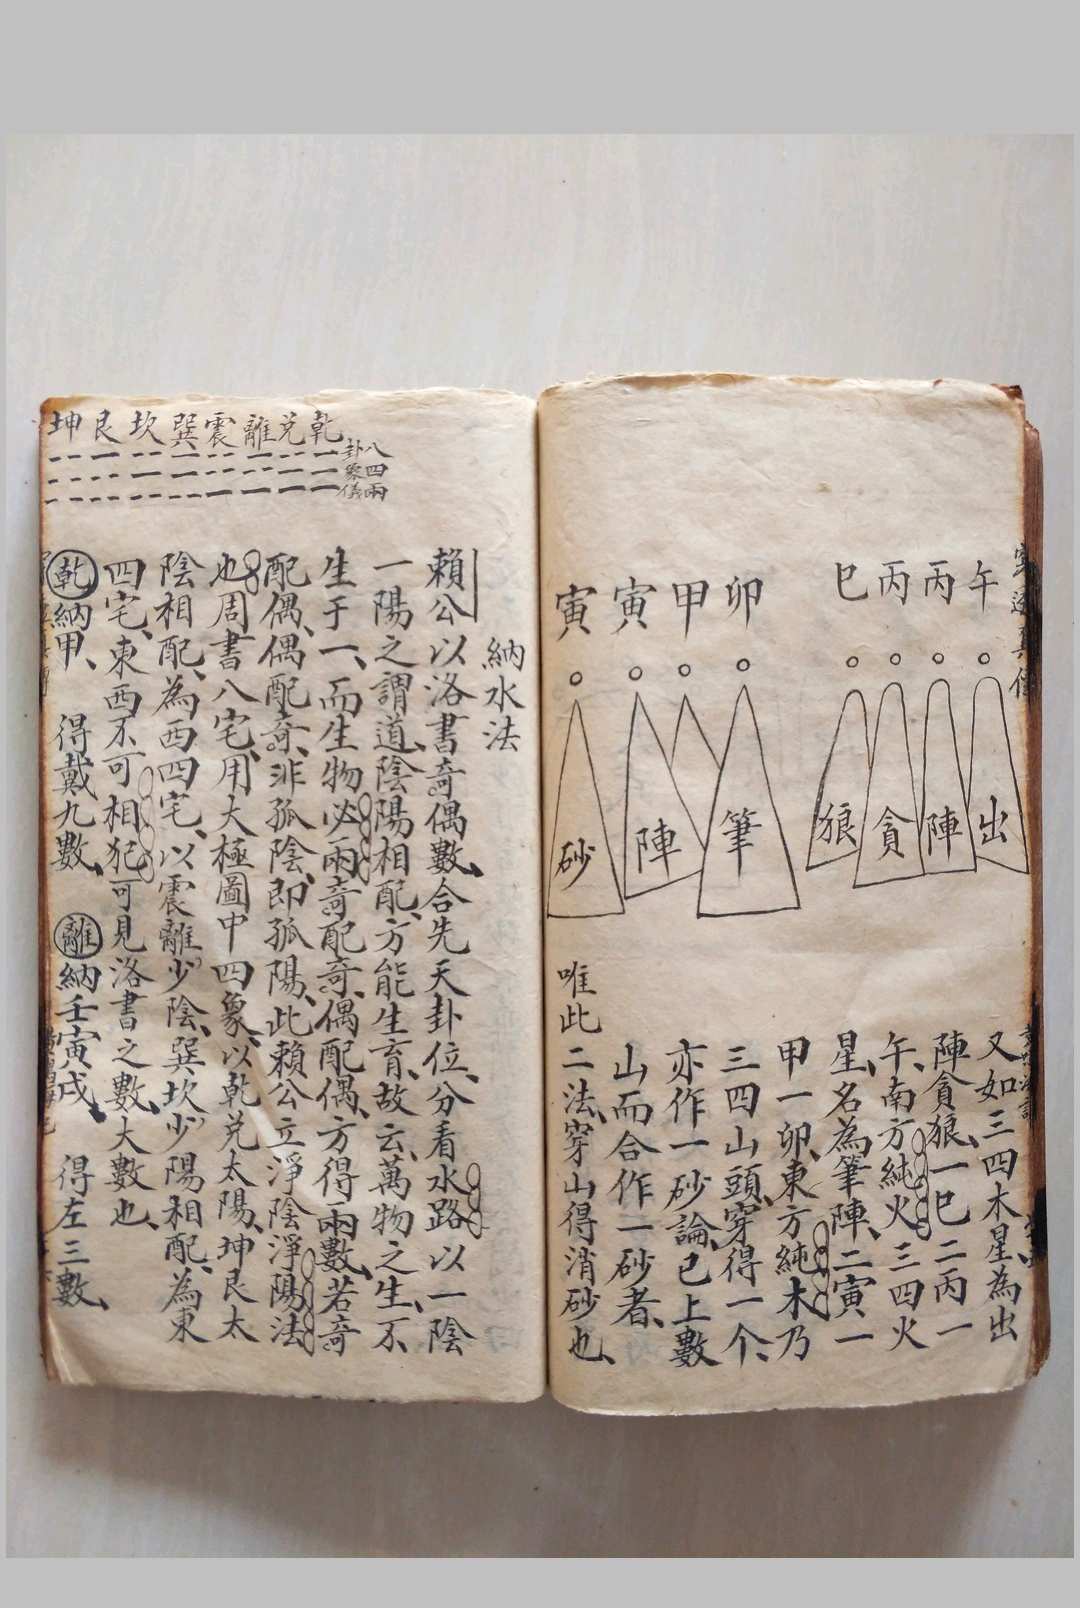 午
丙
丙
巳
卯
甲
寅
寅
出
陣
貪
狼
筆
陣
砂
又如三四木星為出
陣貪狼一巳二丙一
午南方純火三四火
星名為筆陣二寅一
甲一卯東方純木乃
三四山頭穿得一个
亦作一砂論已上數
山而合作一砂者
唯此二法穿山得消砂也
八四兩
卦象儀
乾兌離震巽坎艮坤
納水法
賴公以洛書奇偶數合先天卦位分看水路以一陰
一陽之謂道陰陽相配方能生育故云萬物之生不
生于一而生物必兩奇配奇偶配偶方得兩數若奇
配偶偶配奇非孤陰即孤陽此賴公立淨陰淨陽法
也周書八宅用大極圖中四象以乾兌太陽坤艮太
陰相配為西四宅以震離少陰巽坎少陽相配為東
四宅東西不可相犯可見洛書之數大數也
乾納甲 得戴九數 離納壬寅戌 得左三數